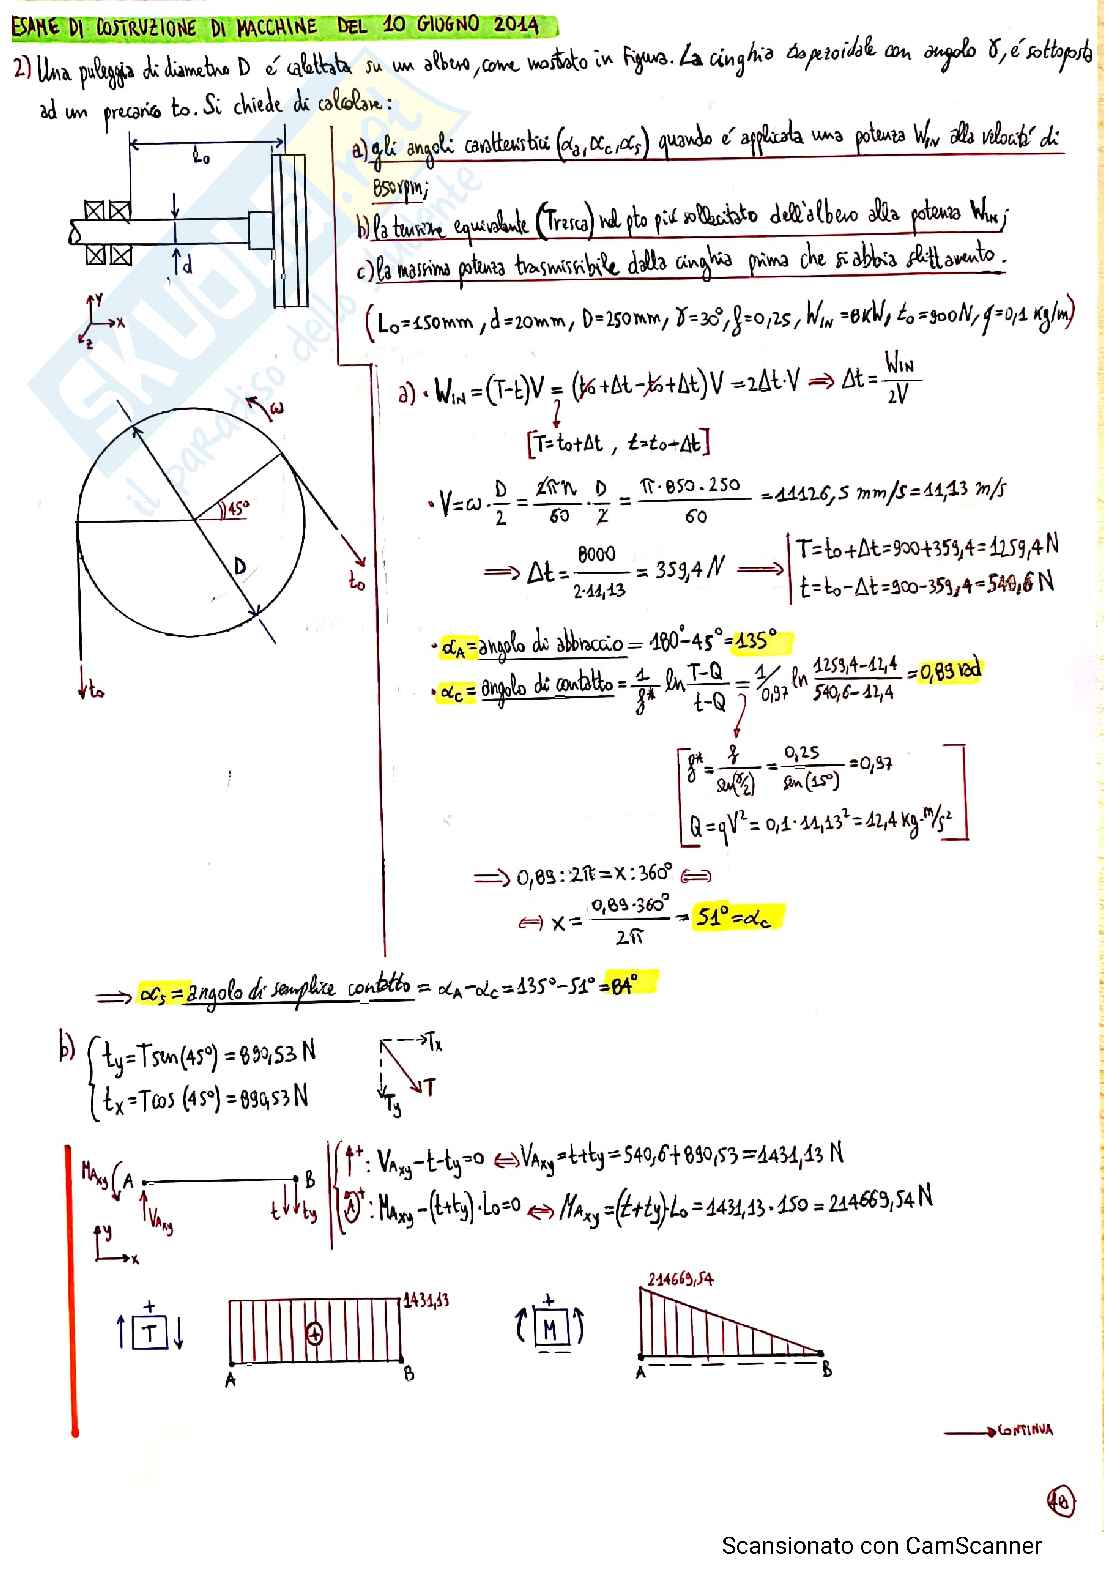 ESAME DI COSTRUZIONE DI MACCHINE DEL 10 GIUGNO 2014
2) Una puleggia di diametro D è calettata su un albero, come mostrato in Figura. La cinghia trapezoidale con angolo γ, è sottoposta
ad un precarico to. Si chiede di calcolare:
a) gli angoli caratteristici (αa, αc, αs) quando è applicata una potenza WIN alla velocità di
850rpm;
b) la tensione equivalente (Tresca) nel pto più sollecitato dell'albero alla potenza WIN;
c) la massima potenza trasmissibile dalla cinghia prima che si abbia slittamento.
(Lo=150mm, d=20mm, D=250mm, γ=30°, f=0,25, WIN=8KW, to=900N, q=0,1 Kg/m)
Lo
d
Y
X
Z
a) • WIN=(T-t)V = (to+Δt-to+Δt)V=2Δt·V ⇒ Δt= WIN/2V
[T=to+Δt, t=to+Δt]
• V=ω·D/2 = 2πn/60 · D/2 = π·850·250/60 = 11126,5 mm/s=11,13 m/s
⇒ Δt= 8000/2·11,13 = 359,4 N ⇒ T=to+Δt=900+359,4=1259,4N
t=to-Δt=900-359,4=540,6 N
ω
45°
D
to
to
• αA=angolo di abbraccio=180°-45°=135°
• αc=angolo di contatto= 1/f* ln T-Q/t-Q = 1/0,97 ln 1259,4-12,4/540,6-12,4 =0,89 rad
f*= f/sen(γ/2) = 0,25/sen(15°) =0,97
Q=qV²=0,1·11,13²=12,4 Kg·m/s²
⇒ 0,89:2π=x:360° ⇔
⇔ x= 0,89·360°/2π = 51°=αc
⇒ αs=angolo di semplice contatto=αA-αc=135°-51°=84°
b) ty=Tsen(45°)=890,53 N
tx=Tcos(45°)=890,53N
Tx
T
Ty
MAxy A B
VAxy t ty
y
x
↑+: VAxy-t-ty=0 ⇔ VAxy=t+ty=540,6+890,53=1431,13 N
A+: MAxy-(t+ty)·Lo=0 ⇔ MAxy=(t+ty)·Lo=1431,13·150=214669,54N
+
T
1431,13
+
A B
+
M
214669,54
A B
→ CONTINUA
Scansionato con CamScanner
SKUOLA.net
il paradiso dello studente